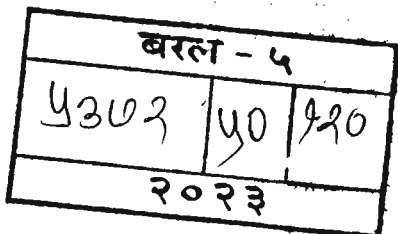 बरल - ५
५३७२ ५० १२०
२०२३